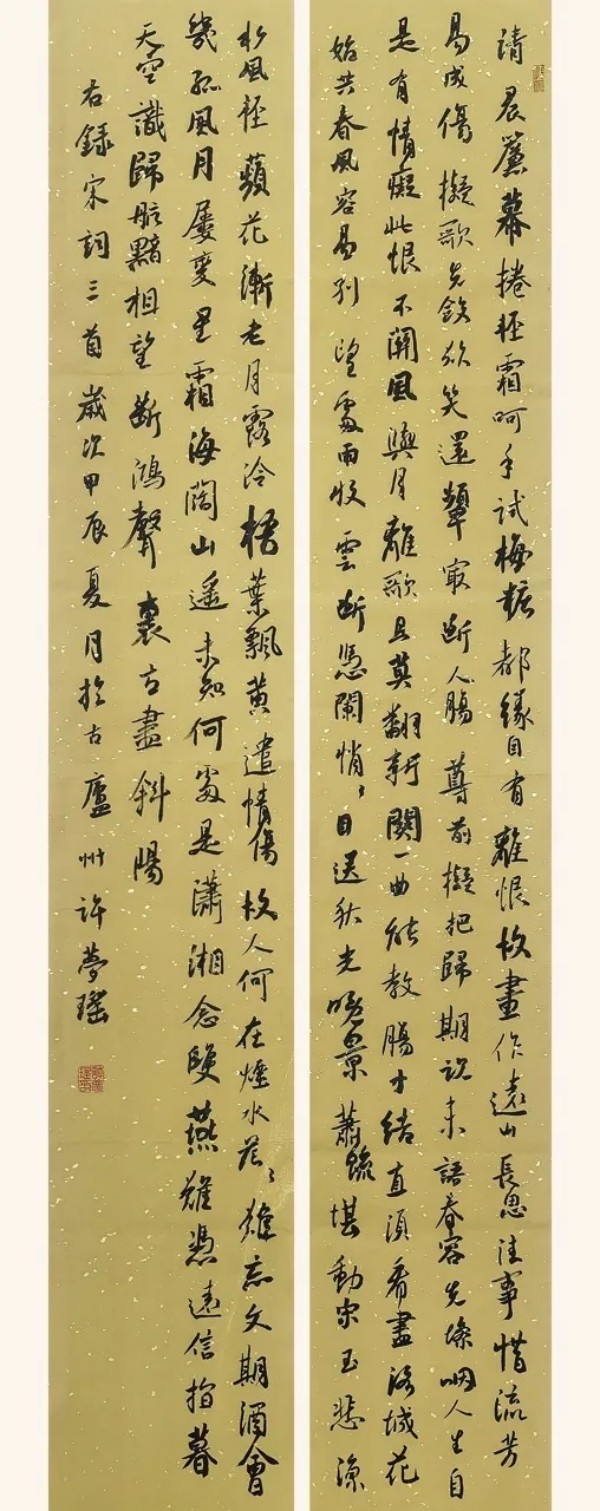 請晨簾幕捲輕霜呵手試梅粧都緣自有離恨故畫作遠山長思往事惜流芳
易成傷擬歌先斂欲笑還顰最斷人腸尊前擬把歸期說未語春容先慘咽人生自
是有情癡此恨不關風與月離歌且莫翻新闋一曲能教腸寸結直須看盡洛城花
始共春風容易別望處雨收雲斷憑闌悄〻目送秋光晚景蕭疏堪動宋玉悲涼
水風輕蘋花漸老月露冷梧葉飄黃遣情傷故人何在煙水茫〻難忘文期酒會
幾孤風月屢變星霜海闊山遙未知何處是瀟湘念雙燕難憑遠信指暮
天空識歸航黯相望斷鴻聲裏立盡斜陽
右錄宋詞三首歲次甲辰夏月於古廬州許夢瑤